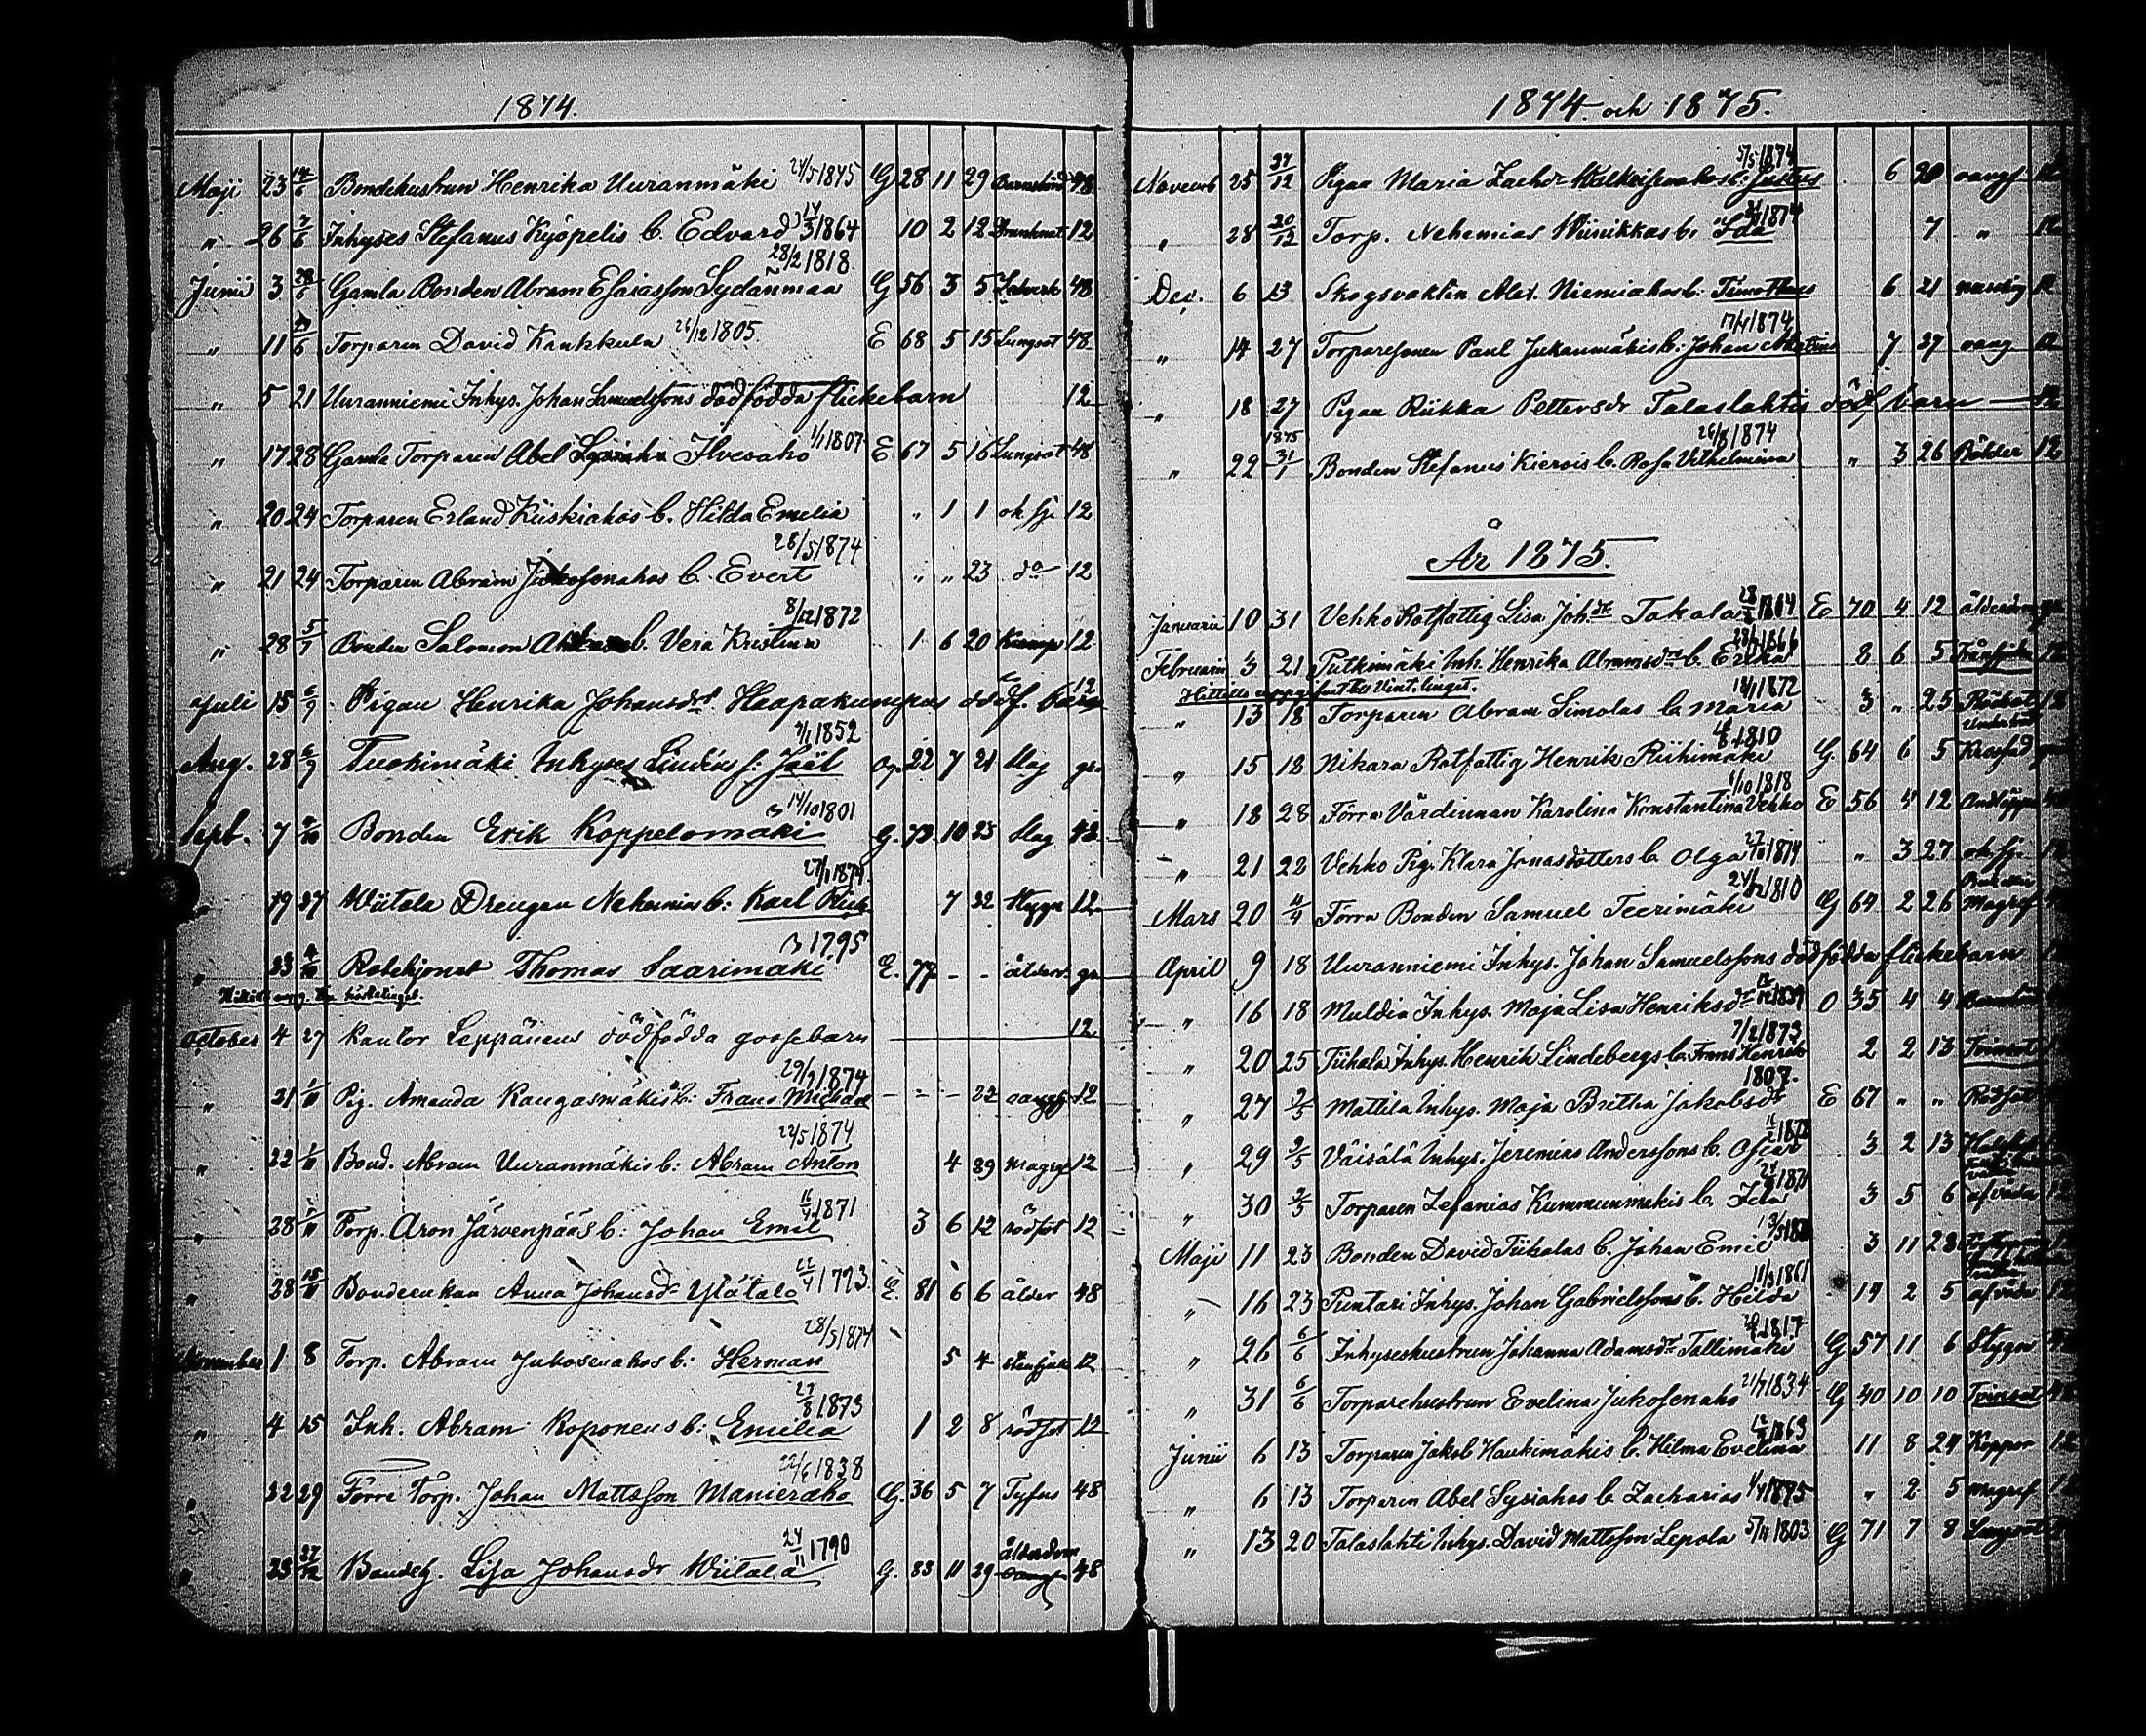 1874.
24/5 1845
Maji 23 14/6 Bondehustrun Henrika Uuranmäki G 28 11 29 Barnsbörd 48
" 26 7/6 Inhyses Stefanus Kyöpelis b. Edvard 17/3 1864 10 2 12 12
28/2 1818
Junii 3 28/6 Gamla Bonden Abram Esaiasson Sydänmaa G 56 3 5 48
" 11 Torparen David Kaukkula 26/12 1805. E 68 5 15 Lungsot 48
" 5 21 Uuranniemi Inhys. Johan Samuelssons dödfödda flickebarn 12
" 17 28 Gamla Torparen Abel Ilvesaho 1/1 1807 E 67 5 16 Lungsot 48
" 20 24 Torparen Erland Kiiskiahos b. Hilda Emelia " 1 1 ok. sj. 12
28/5 1874
" 21 24 Torparen Abram Jukosenahos b. Evert " " 23 do 12
8/12 1872
" 28 5/7 Bonden Salomon b. Vera Kristina 1 6 20 Kramp 12
Juli 15 6/9 Pigan Henrika Johansdr Haapakumpus dödf. barn 12
7/1 1852
Aug. 28 6/9 Tuokimäki Inhyses s: Joël og. 22 7 21 slag gr.
14/10 1801
Sept. 7 Bonden Erik Koppelomäki G. 72 10 23 slag 48
27/1 1874
" 19 27 Wiitala Drengen Nehemias b: Karl 7 22 Stygn 12
1795
" 23 4/10 Rotehjonet Thomas Saarimäki E. 77 - - ålderd. gr
October 4 27 Kantor Leppänens dödfödda gossebarn 12
29/9 1874
" 21 1/11 Pig. Amanda Kangasmäkis b: Frans Michael - - - 22 12
22/5 1874
" 22 1/11 Bond. Abram Uuranmäkis b: Abram Anton 4 29 magsj 12
16/4 1871
" 28 1/11 Torp. Aron Järvenpääs b: Johan Emil 3 6 12 rödsot 12
22/4 1793
" 28 15/11 Bondeenkan Anna Johansdr Ylätalo E. 81 6 6 ålder 48
28/5 1874
November 1 8 Torp. Abram Jukosenahos b: Herman 5 4 12
27/8 1873
" 4 15 Inh. Abram Koponens b: Emilia 1 2 8 rödsot 12
22/6 1838
" 22 29 Förre Torp. Johan Mattsson Manieraho G. 36 5 7 Tyfus 48
24/11 1790
" 23 27/12 Bondeg. Lisa Johansdr Wiitala G. 83 11 29 ålderdom 48
1874 och 1875.
5/5 1874
Novemb 25 27/12 Pigan Maria Zachdr b: Justus 6 20 12
" 28 20/12 Torp. Nehemias Wiinikkas b: Ida 7 " 12
Dec. 6 13 Skogsvakten Alex. Niemiahos b: Timotheus 6 21 12
17/4 1874
" 14 27 Torparesonen Paul Jukanmäkis b: Johan 7 27 12
" 18 27 Pigan Riikka Pettersdr Talaslahtis dödf barn 12
1875 26/8 1874
" 22 31/1 Bonden Stefanus Kierois b. Rosa Vilhelmina " 3 26 Bölder 12
År 1875.
Januarii 10 31 Vehko Rotfattig Lisa Joh.dr Takala E 70 4 12 ålderdom gr
Februarii 3 21 Putkimäki Inh. Henrika Abramsdrs b. Erika 8 6 5 12
18/1 1872
" 13 18 Torparen Abram Simolas b. Maria 3 " 25 12
1810
" 15 18 Nikara Rotfattig Henrik Riihimäki G. 64 6 5
6/10 1818
" 18 28 Förra Värdinnan Karolina Konstantina Vehko E 56 4 12
" 21 22 Vehko Pig. Klara Jonasdotters b. Olga 1874 " 3 27 ok. sj.
24/12 1810
Mars 20 4/4 Förra Bonden Samuel Teerimäki G 64 2 26
April 9 18 Uuranniemi Inhys. Johan Samuelssons dödfödda flickebarn
" 16 18 Muldia Inhys. Maja Lisa Henriksdr 1839 O 35 4 4
7/2 1873
" 20 25 Tiihala Inhys. Henrik Lindebergs b. Frans Henrik 2 2 13 Tvinsot
1807.
" 27 2/5 Mattila Inhys. Maja Britha Jakobsdr E 67 " " Rödsot
" 29 2/5 Väisälä Inhys. Jeremias Anderssons b. Oscar 3 2 13
" 30 2/5 Torparen Zefanias Kummunmäkis b. 3 5 6 af våda 12
Maji 11 23 Bonden David Tiihalas b. Johan Emil 3 11 28
11/3 1861
" 16 23 Puntari Inhys. Johan Gabrielssons b. Hilda 14 2 5 af våda
1817
" 26 6/6 Inhyseshustrun Johanna Adamsdr Tallimäki G 57 11 6 Stygn
" 31 6/6 Torparehustrun Evelina Jukosenaho 21/7 1834 G 40 10 10 Tvinsot
1863
Junii 6 13 Torparen Jakob Haukimäkis b. Hilma Evelina 11 8 24 Koppor 12
" 6 13 Torparen Abel Sysiahos b. Zacharias 1/4 1875 " 2 5
" 13 20 Talaslahti Inhys. David Mattsson Lepola 5/11 1803 G 71 7 8 Lungsot